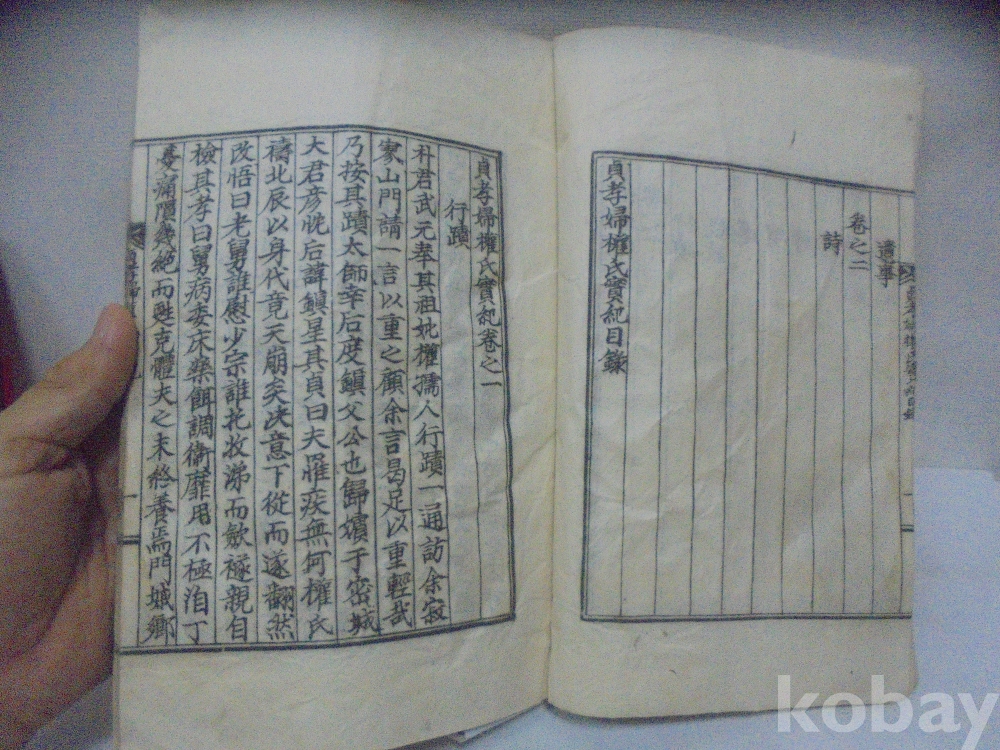 遺事
卷之二
詩
貞孝婦權氏實紀目錄
貞孝婦權氏實紀卷之一
行蹟
朴君武元奉其祖妣權孺人行蹟一通訪余寂
家山門請一言以重之顧余言曷足以重輕哉
乃按其蹟太師幸后度顗父公也歸嬪于密城
大君彥忱后諱鎭星其貞曰夫罹疾無何權氏
禱北辰以身代竟天崩矣决意下從而遂翻然
改悟曰老舅誰慰少宗誰托收涕而歛襚親自
檢其孝曰舅病委床藥餌調衛靡用不極洎丁
憂痛隕幾絕而甦克體夫之未終養焉門娥鄉
kobay